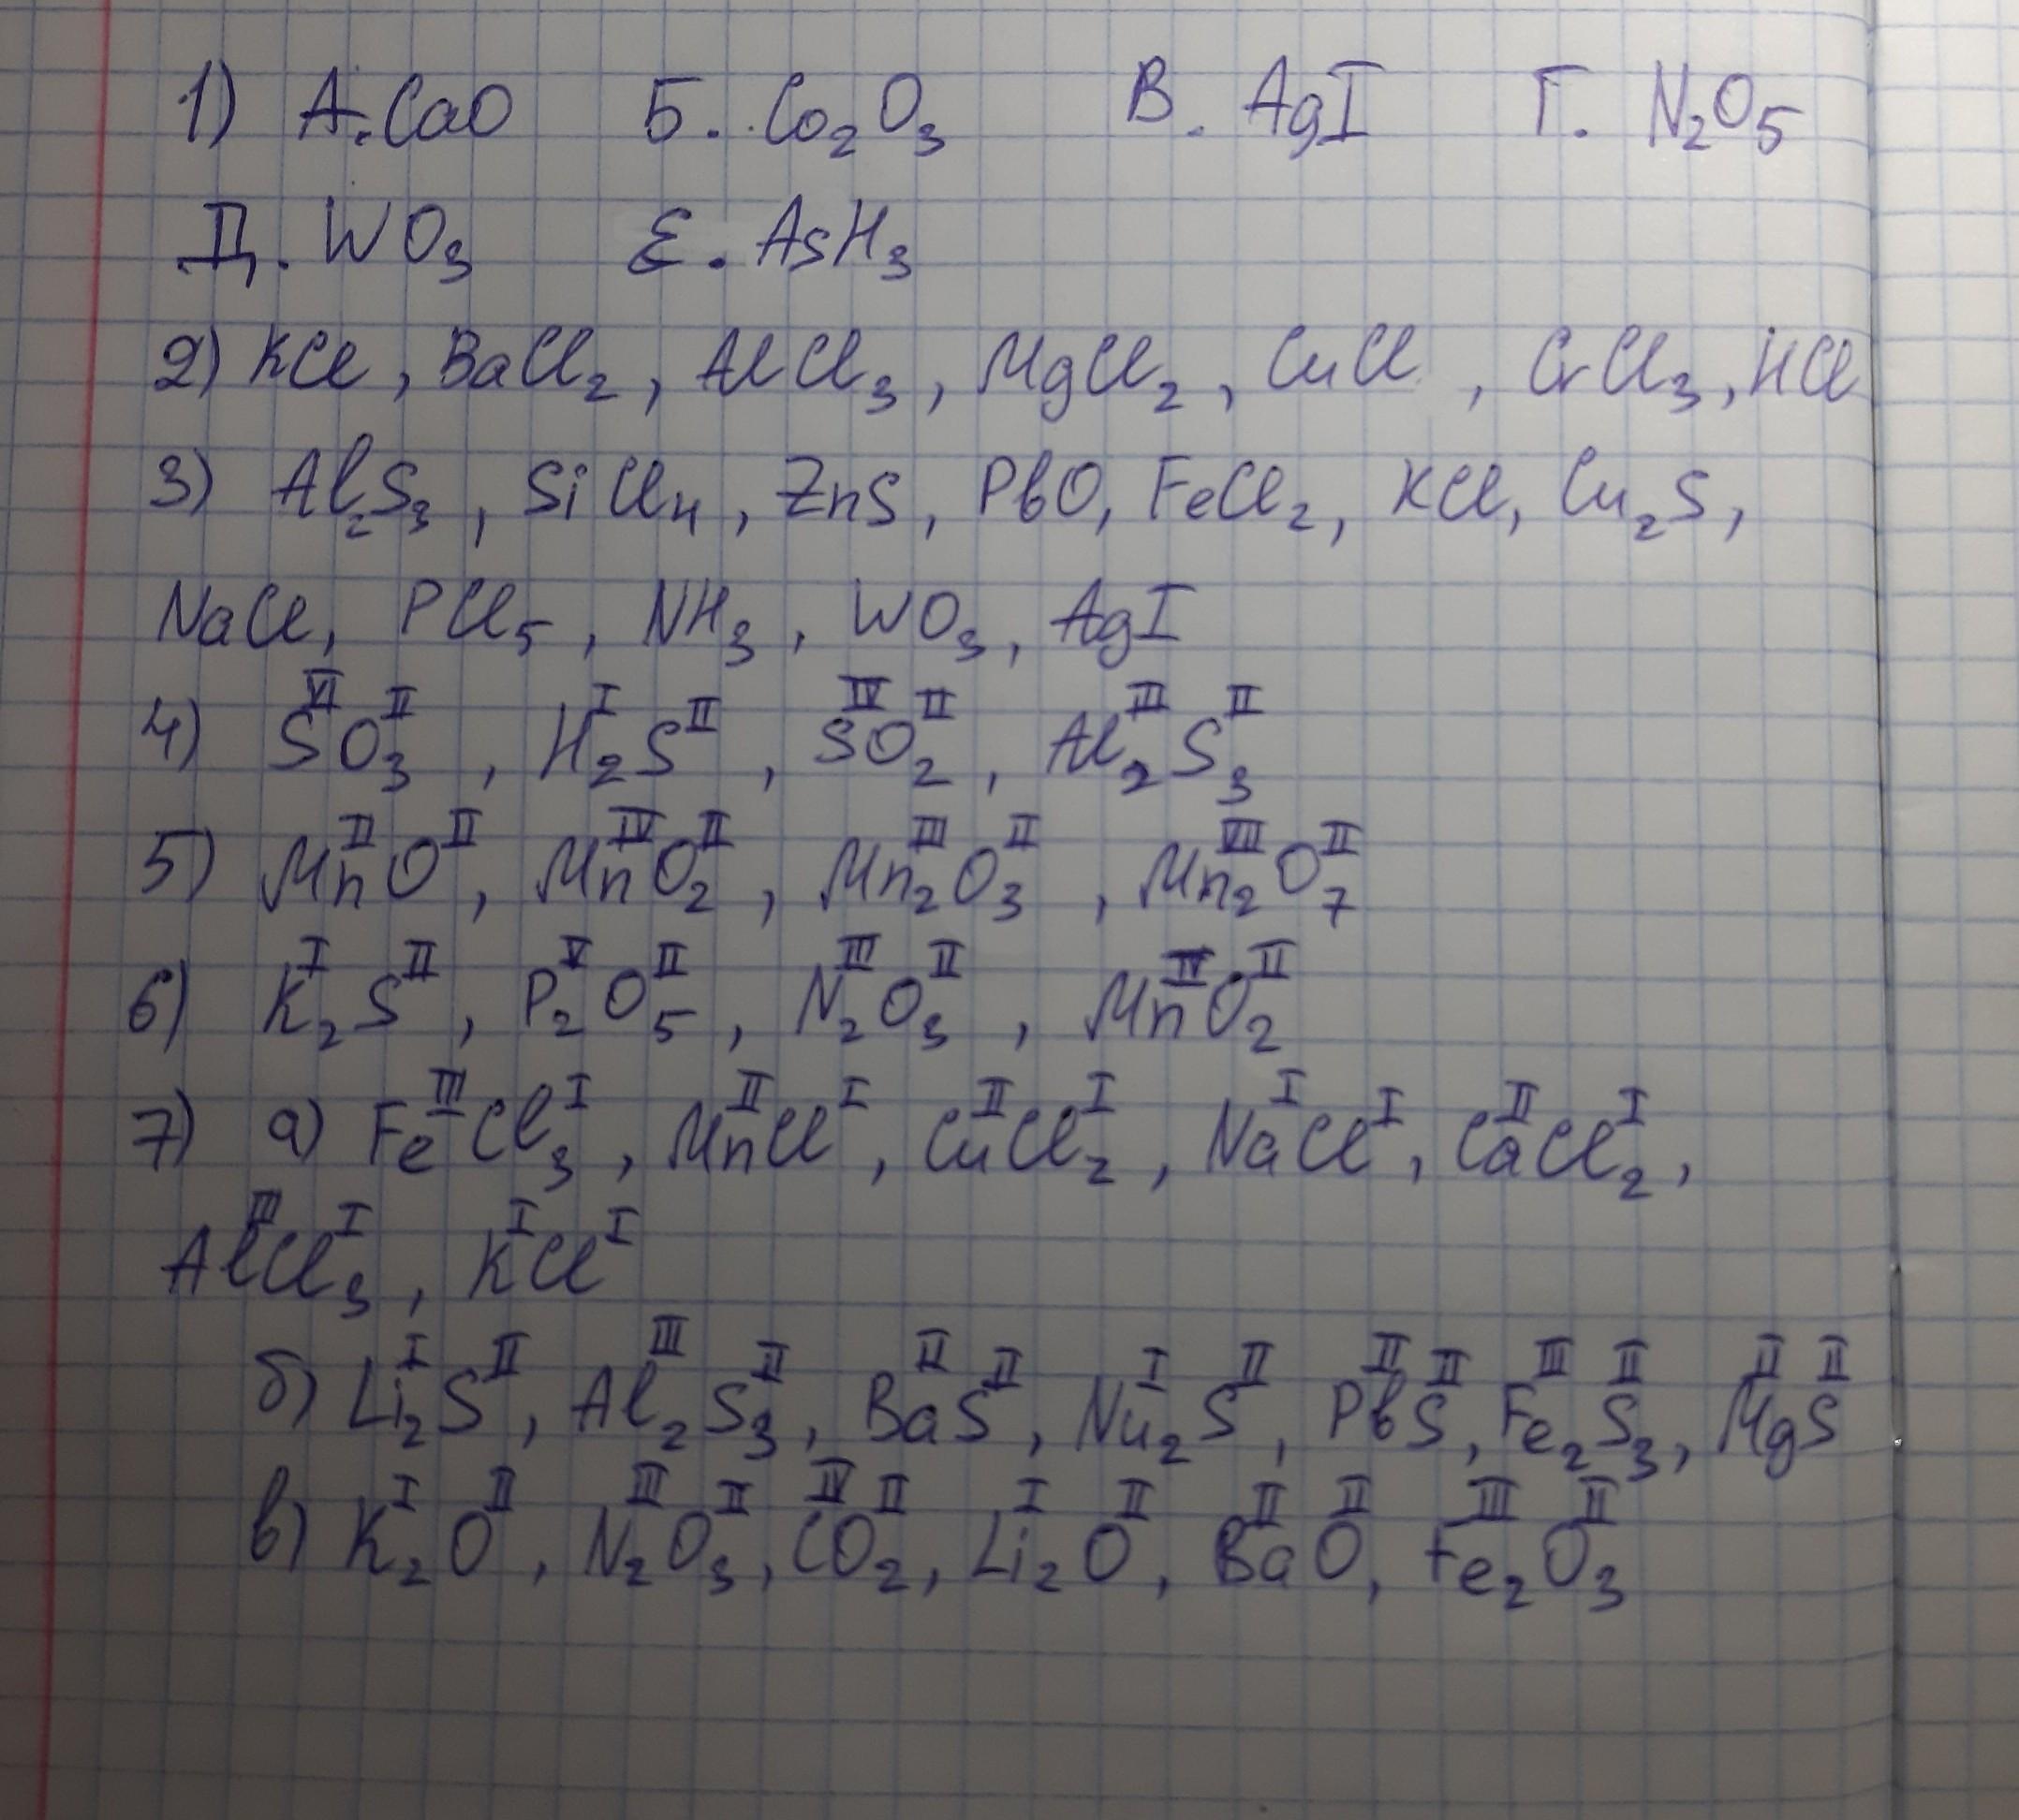 1) А. CaO Б. Co₂O₃ В. AgI Г. N₂O₅
Д. WO₃ Е. AsH₃
2) KCl, BaCl₂, AlCl₃, MgCl₂, CuCl, CrCl₃, HCl
3) Al₂S₃, SiCl₄, ZnS, PbO, FeCl₂, KCl, Cu₂S,
NaCl, PCl₅, NH₃, WO₃, AgI
4) S^VI O₃^II, H₂^I S^II, S^IV O₂^II, Al₂^III S₃^II
5) Mn^II O^II, Mn^IV O₂^II, Mn₂^III O₃^II, Mn₂^VII O₇^II
6) K₂^I S^II, P₂^V O₅^II, N₂^III O₃^II, Mn^IV O₂^II
7) а) Fe^III Cl₃^I, Mn^II Cl^I, Cu^II Cl₂^I, Na^I Cl^I, Ca^II Cl₂^I,
Al^III Cl₃^I, K^I Cl^I
б) Li₂^I S^II, Al₂^III S₃^II, Ba^II S^II, Nu₂^I S^II, Pb^II S^II, Fe₂^III S₃^II, Mg^II S^II
в) K₂^I O^II, N₂^III O₃^II, C^IV O₂^II, Li₂^I O^II, Ba^II O^II, Fe₂^III O₃^II